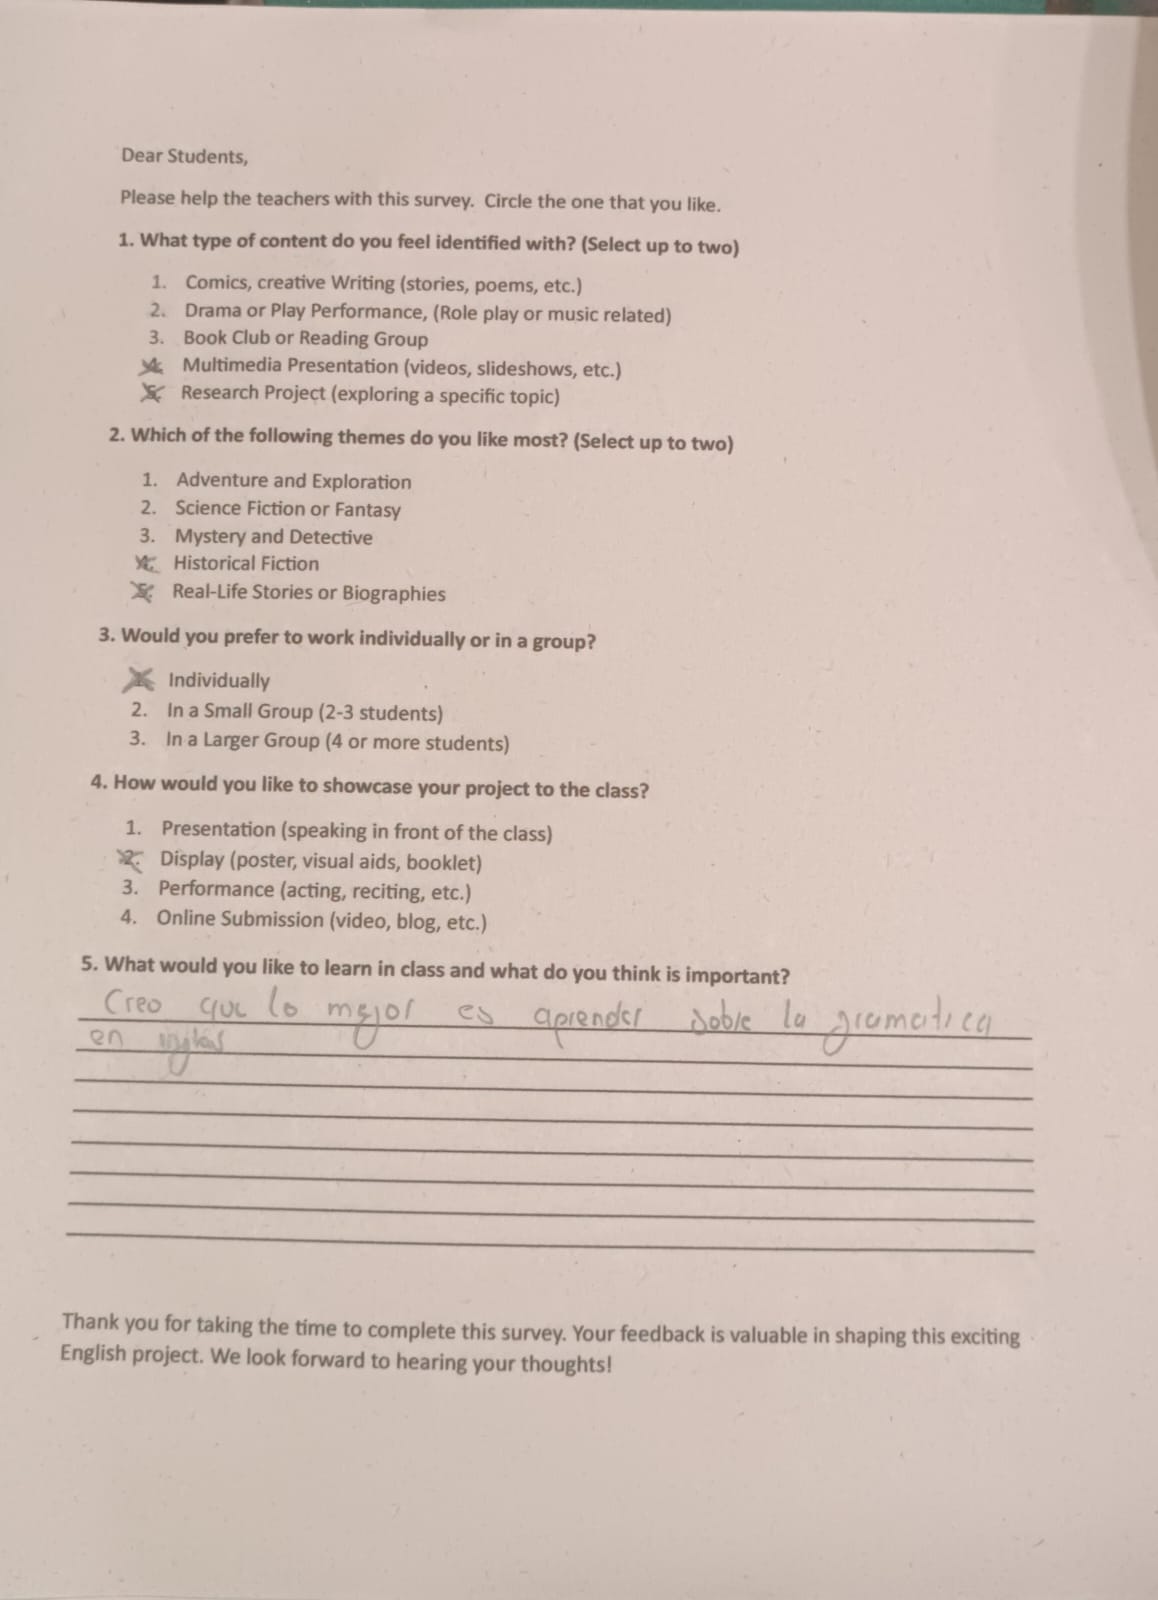 Dear Students,
Please help the teachers with this survey. Circle the one that you like.
1. What type of content do you feel identified with? (Select up to two)
1. Comics, creative Writing (stories, poems, etc.)
2. Drama or Play Performance, (Role play or music related)
3. Book Club or Reading Group
4. Multimedia Presentation (videos, slideshows, etc.)
5. Research Project (exploring a specific topic)
2. Which of the following themes do you like most? (Select up to two)
1. Adventure and Exploration
2. Science Fiction or Fantasy
3. Mystery and Detective
4. Historical Fiction
5. Real-Life Stories or Biographies
3. Would you prefer to work individually or in a group?
1. Individually
2. In a Small Group (2-3 students)
3. In a Larger Group (4 or more students)
4. How would you like to showcase your project to the class?
1. Presentation (speaking in front of the class)
2. Display (poster, visual aids, booklet)
3. Performance (acting, reciting, etc.)
4. Online Submission (video, blog, etc.)
5. What would you like to learn in class and what do you think is important?
Creo que lo mejor es aprender sobre la gramatica
en ingles
Thank you for taking the time to complete this survey. Your feedback is valuable in shaping this exciting
English project. We look forward to hearing your thoughts!